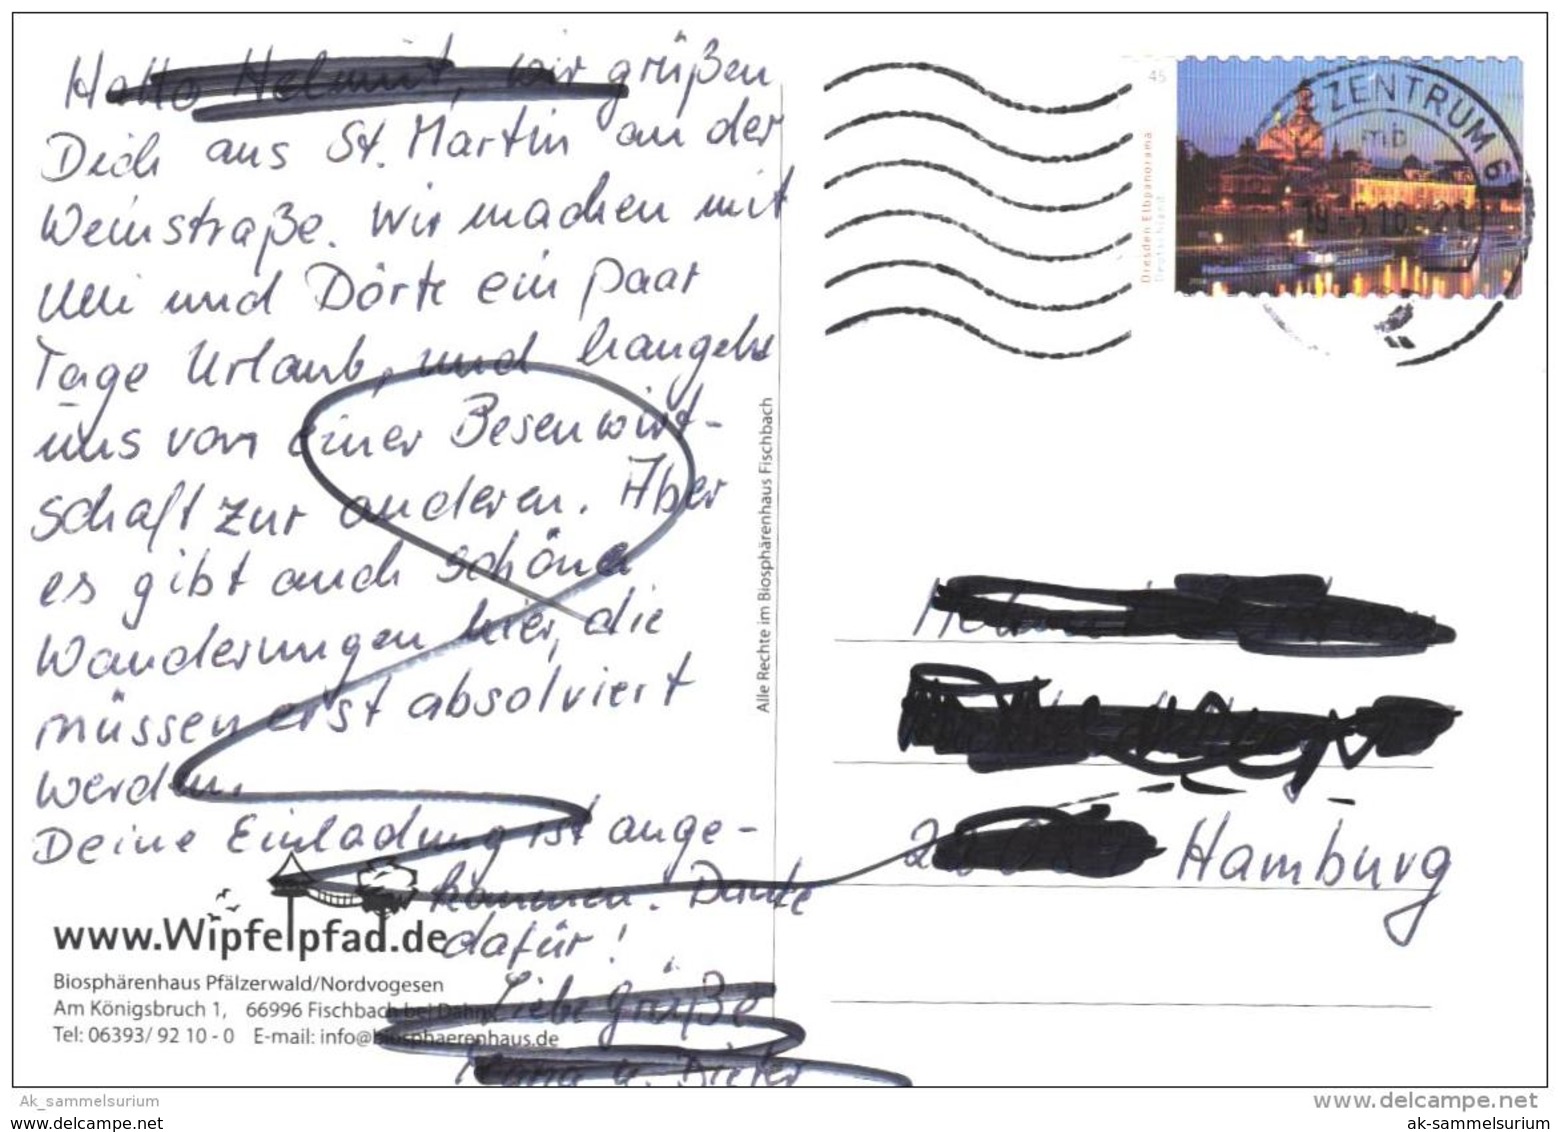 Hallo Helmut, wir grüßen
Dich aus St. Martin an der
Weinstraße. Wir machen mit
Ulli und Dörte ein paar
Tage Urlaub, und hangeln
uns von einer Besenwirt-
schaft zur anderen. Aber
es gibt auch schöne
Wanderungen hier, die
müssen erst absolviert
werden.
Deine Einladung ist ange-
kommen. Danke
dafür!
Liebe Grüße
Maria u. Dieter
www.Wipfelpfad.de
Biosphärenhaus Pfälzerwald/Nordvogesen
Am Königsbruch 1, 66996 Fischbach bei Dahn
Tel: 06393/ 92 10 - 0 E-mail: info@biosphaerenhaus.de
Alle Rechte im Biosphärenhaus Fischbach
45
Dresden Elbpanorama
Deutschland
ZENTRUM 6
mb
19.-5.16-21
Hamburg
Ak_sammelsurium
www.delcampe.net
www.delcampe.net
ak-sammelsurium